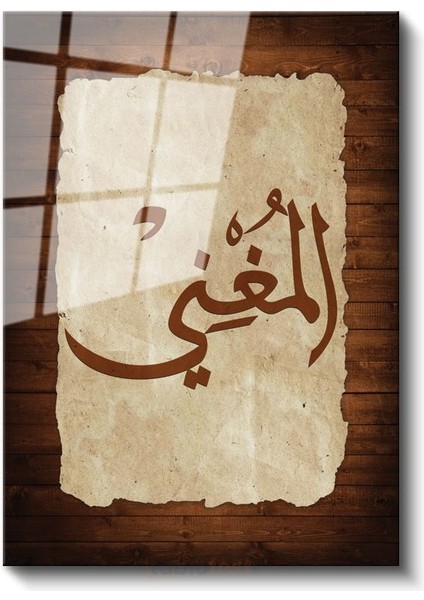 المُغْنِيْ